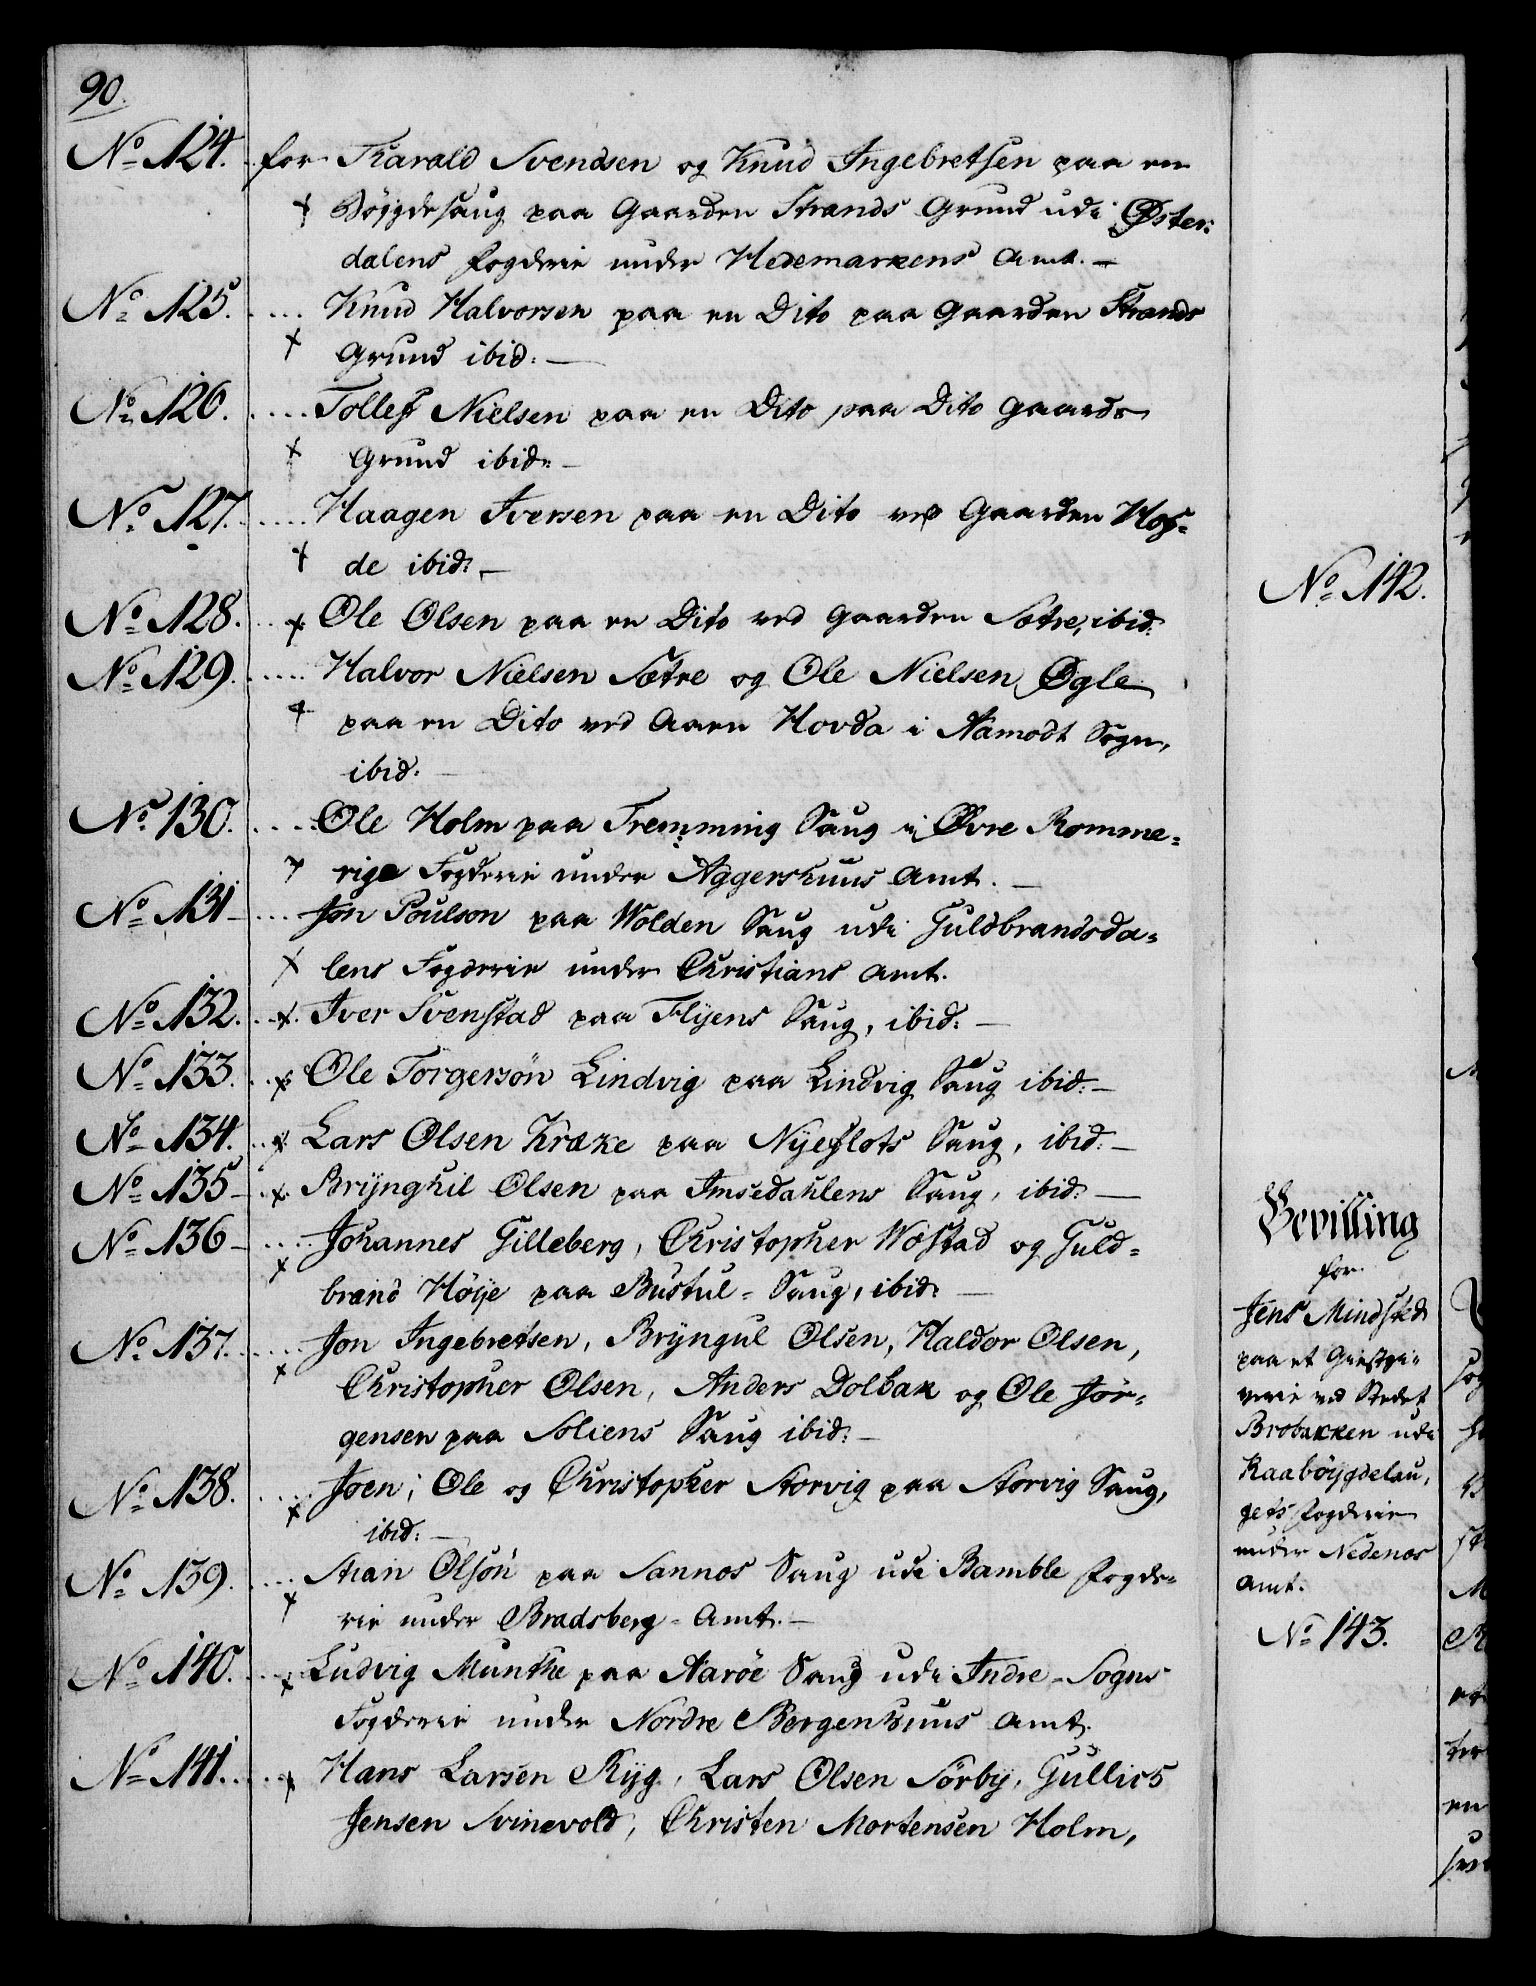 90.
No 124. for Harald Svendsen og Knud Ingebretsen paa en
+ Böygdesaug paa Gaarden Strands Grund udi Øster:
dalens Fogderie under Hedemarkens Amt. —
No 125. .... Knud Halvorsen paa en Dito paa Gaarden Strands
+ Grund ibid: —
No 126. .... Tollef Nielsen paa en Dito paa Dito Gaards
+ Grund ibid: —
No 127. .... Haagen Iversen paa en Dito ved Gaarden Hof=
+ de ibid: —
No 128. .. + Ole Olsen paa en Dito ved Gaarden Sætre, ibid:
No 129. .... Halvor Nielsen Sætre og Ole Nielsen Øgle
+ paa en Dito ved Aaen Hovda i Aamodt Sogn,
ibid: —
No 130. .... Ole Holm paa Tremming Saug i Øvre Romme=
+ rige Fogderie under Aggershuus Amt. —
No 131 .... Jon Poulson paa Wolden Saug udi Guldbrandsda=
+ lens Fogderie under Christians Amt.
No 132. .. + Iver Svenstad paa Flyens Saug, ibid: —
No 133. .. + Ole Törgersön Lindvig paa Lindvig Saug ibid: —
No 134. .. + Lars Olsen Kræke paa Nyeflots Saug, ibid: —
No 135 .. + Brynghil Olsen paa Imsedahlens Saug, ibid: —
No 136 .... Johannes Gilleberg, Christopher Wæstad og Guld=
+ brand Höye paa Bustul = Saug, ibid: —
No 137. .... Jon Ingebretsen, Bryngul Olsen, Haldor Olsen,
+ Christopher Olsen, Anders Dolbak og Ole Jör=
gensen paa Soliens Saug ibid: —
No 138. .... Joen, Ole og Christopher Storvig paa Storvig Saug,
+ ibid: —
No 139. .... Stian Olsön paa Sannos Saug udi Bamble Fogde=
+ rie under Bradsberg = Amt. —
No 140. .. + Ludvig Munthe paa Aaröe Saug udi Indre = Sogns
Fogderie under Nordre Bergenhuus Amt.
No 141. .. + Hans Larsen Ryg, Lars Olsen Sörby, Gullich
Jensen Svinevold, Christen Mortensen Holm,
No 142.
Bevilling
for
Jens Mindsted
paa et Giestgi=
verie ved Stedet
Brobakken udi
Raaböygdelau,
gets Fogderie
under Nedenæs
Amt.
No 143.